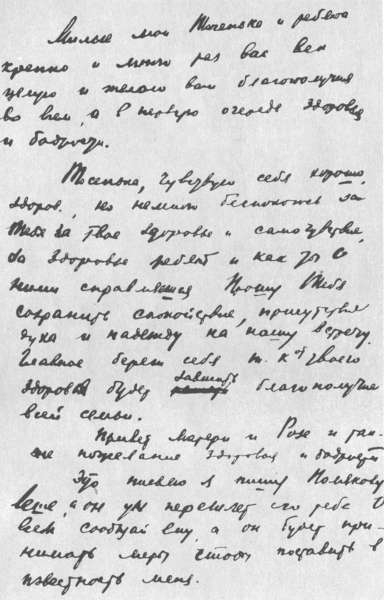 Милые мои Тосенька и ребята
крепко и много раз вас всех
целую и желаю вам благополучия
во всем, а в первую очередь здоровья
и бодрости.
Тосенька, чувствую себя хорошо,
здоров, но немного беспокоюсь за
Тебя за Твое здоровье и самочувствие,
за здоровье ребят и как ты с
ними справляешься Прошу Тебя
сохранить спокойствие, присутствие
духа и надежду на нашу встречу.
Главное береги себя т. к. от твоего
здоровья будет зависеть благополучие
всей семьи.
Привет матери и Розе и так-
же пожелание здоровья и бодрости
Это письмо я пишу Полякову
Леше, а он уж перешлет его тебе О
всем сообщай ему, а он будет при-
нимать меры чтобы поставить в
известность меня.